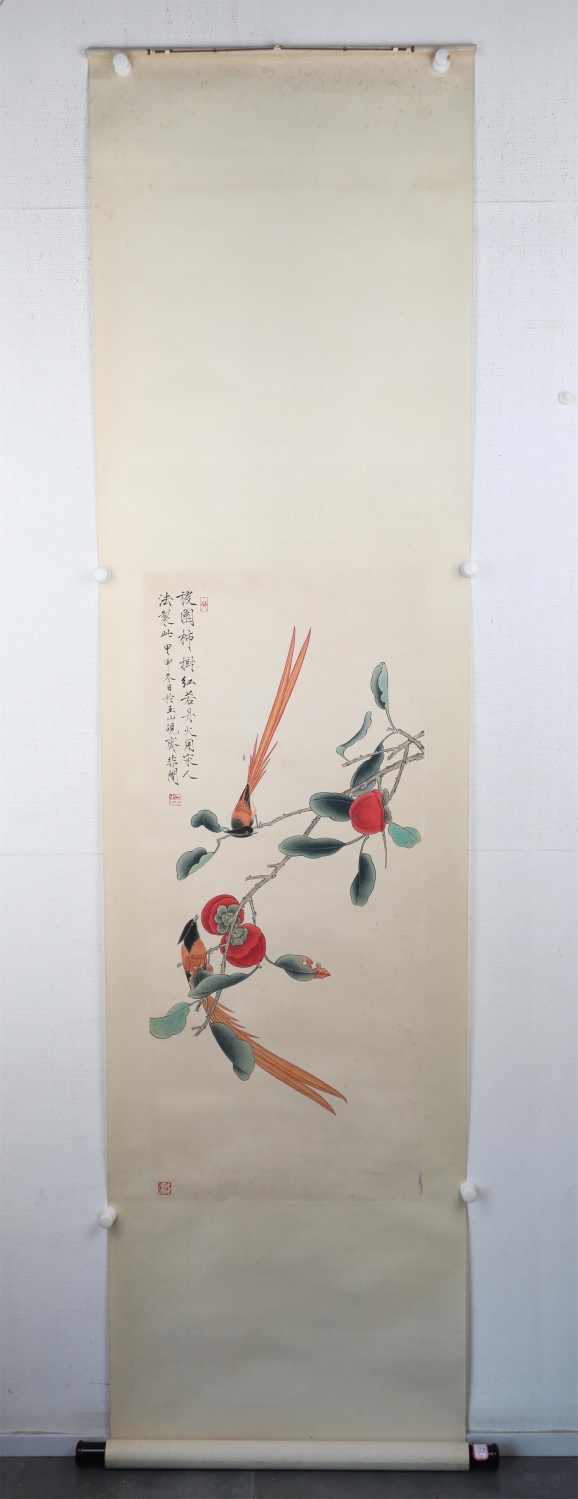 後園柿樹紅若丹火用宋人
法製此甲申冬日於玉山硯齋非闇